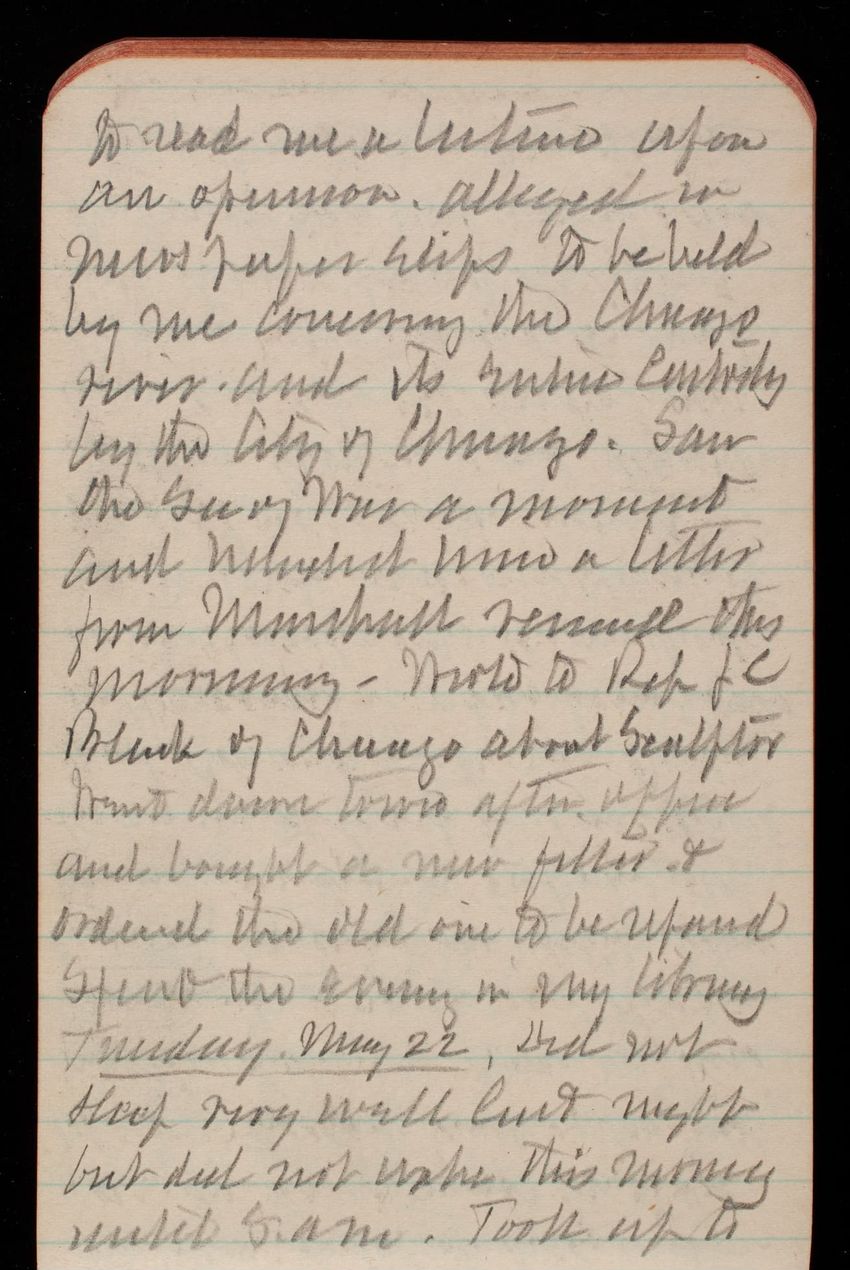 to read me a lecture upon
an openion. alleged in
news paper slips to be held
by me concerning the Chicago
river. and its entire Custody
by the City of Chicago. Saw
the Sec of War a moment
and handed him a letter
from Marshall received this
morning - Wrote to Rep J C
Black of Chicago about Sculptor
Went down town after office
and bought a new filter &
ordered the old one to be repaired
Spent the evening in my library
Tuesday. May 22, Did not
sleep very well last night
but did not wake this morning
until 5. am. Took up to